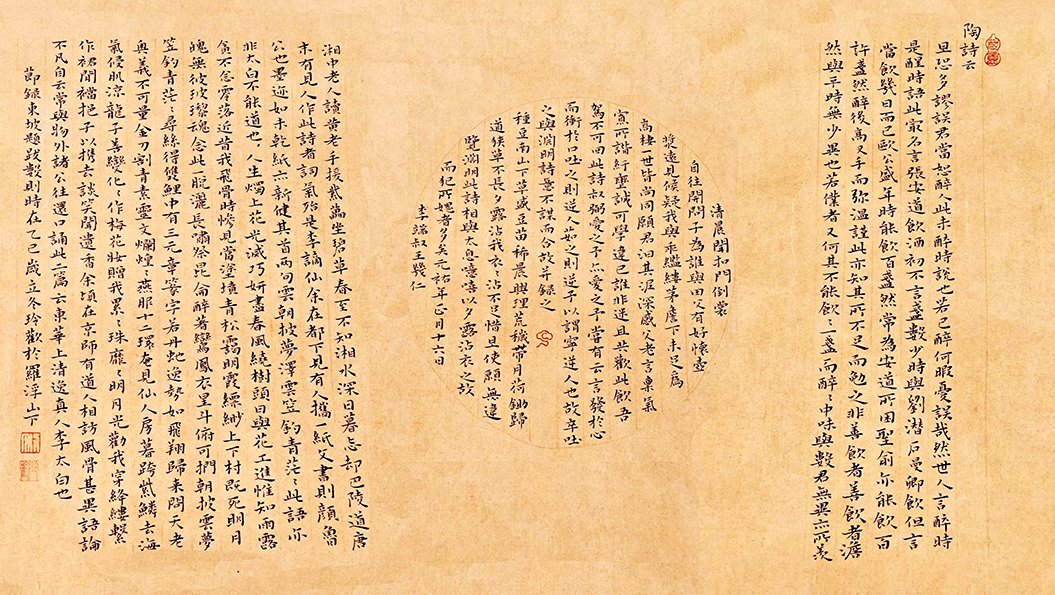 陶詩云
旦恐多謬誤君當恕醉人此未醉時說也若已醉何暇憂誤哉然世人言醉時
是醒時語此最名言張安道飲酒初不言盞數少時與劉潛石曼卿飲但言
當飲幾日而已歐公盛年時能飲百盞然常為安道所困聖俞亦能飲百
許盞然醉後高叉手而弥溫謹此亦知其所不足而勉之非善飲者善飲者澹
然與平時無少異也若僕者又何其不能飲〻盞而醉〻中味與數君無異亦所羨
清晨聞扣門倒裳
自往開問子為誰與田父有好懷壺
漿遠見候疑我與乖繿縷茅簷下未足為
高棲一世皆尚同願君汩其泥深感父老言稟氣
寡所諧紆轡誠可學違已詎非迷且共歡此飲吾
駕不可回此詩叔弼愛之予亦愛之予嘗有云言發於心
而衝於口吐之則逆人茹之則逆予以謂寧逆人也故卒吐
之與淵明詩意不謀而合故并錄之
種豆南山下草盛豆苗稀晨興理荒穢帶月荷鋤歸
道狹草木長夕露沾我衣〻沾不足惜但使願無違
覽淵明此詩相與太息噫嘻以夕露沾衣之故
而犯所媿者多矣元祐年正月十六日
李端叔王幾仁
湘中老人讀黃老手援紫藟坐碧草春至不知湘水深日暮忘却巴陵道唐
末有見人作此詩者詞氣殆是李謫仙余在都下見有人攜一紙文書則顏魯
公也墨迹如未乾紙亦新健其首兩句雲朝披夢澤雲笠釣青茫〻此語亦
非太白不能道也人生燭上花光滅巧妍盡春風繞樹頭日與花工進惟知雨露
貪不念零落近昔我飛骨時慘見當塗墳青松靄明霞縹緲上下村既死明月
魄無彼玻璨魂念此一脫灑長嘯祭昆侖醉著鸞鳳衣星斗俯可捫朝披雲夢
笠釣青茫〻尋絲得雙鯉中有三元章篆字若丹虵逸勢如飛翔歸來問天老
奧義不可量金刀割青素靈文爛煌〻燕服十二環奄見仙人房暮跨紫鱗去海
氣侵肌涼龍子善變化〻作梅花妝贈我累〻珠靡〻明月光勸我穿絳縷繫
作裙間襠挹子以攜去談笑聞遺香余頃在京師有道人相訪風骨甚異語論
不凡自云常與物外諸公往還口誦此二篇云東華上清逸真人李太白也
節録東坡題跋數則時在乙巳歲立冬玲歡於羅浮山下